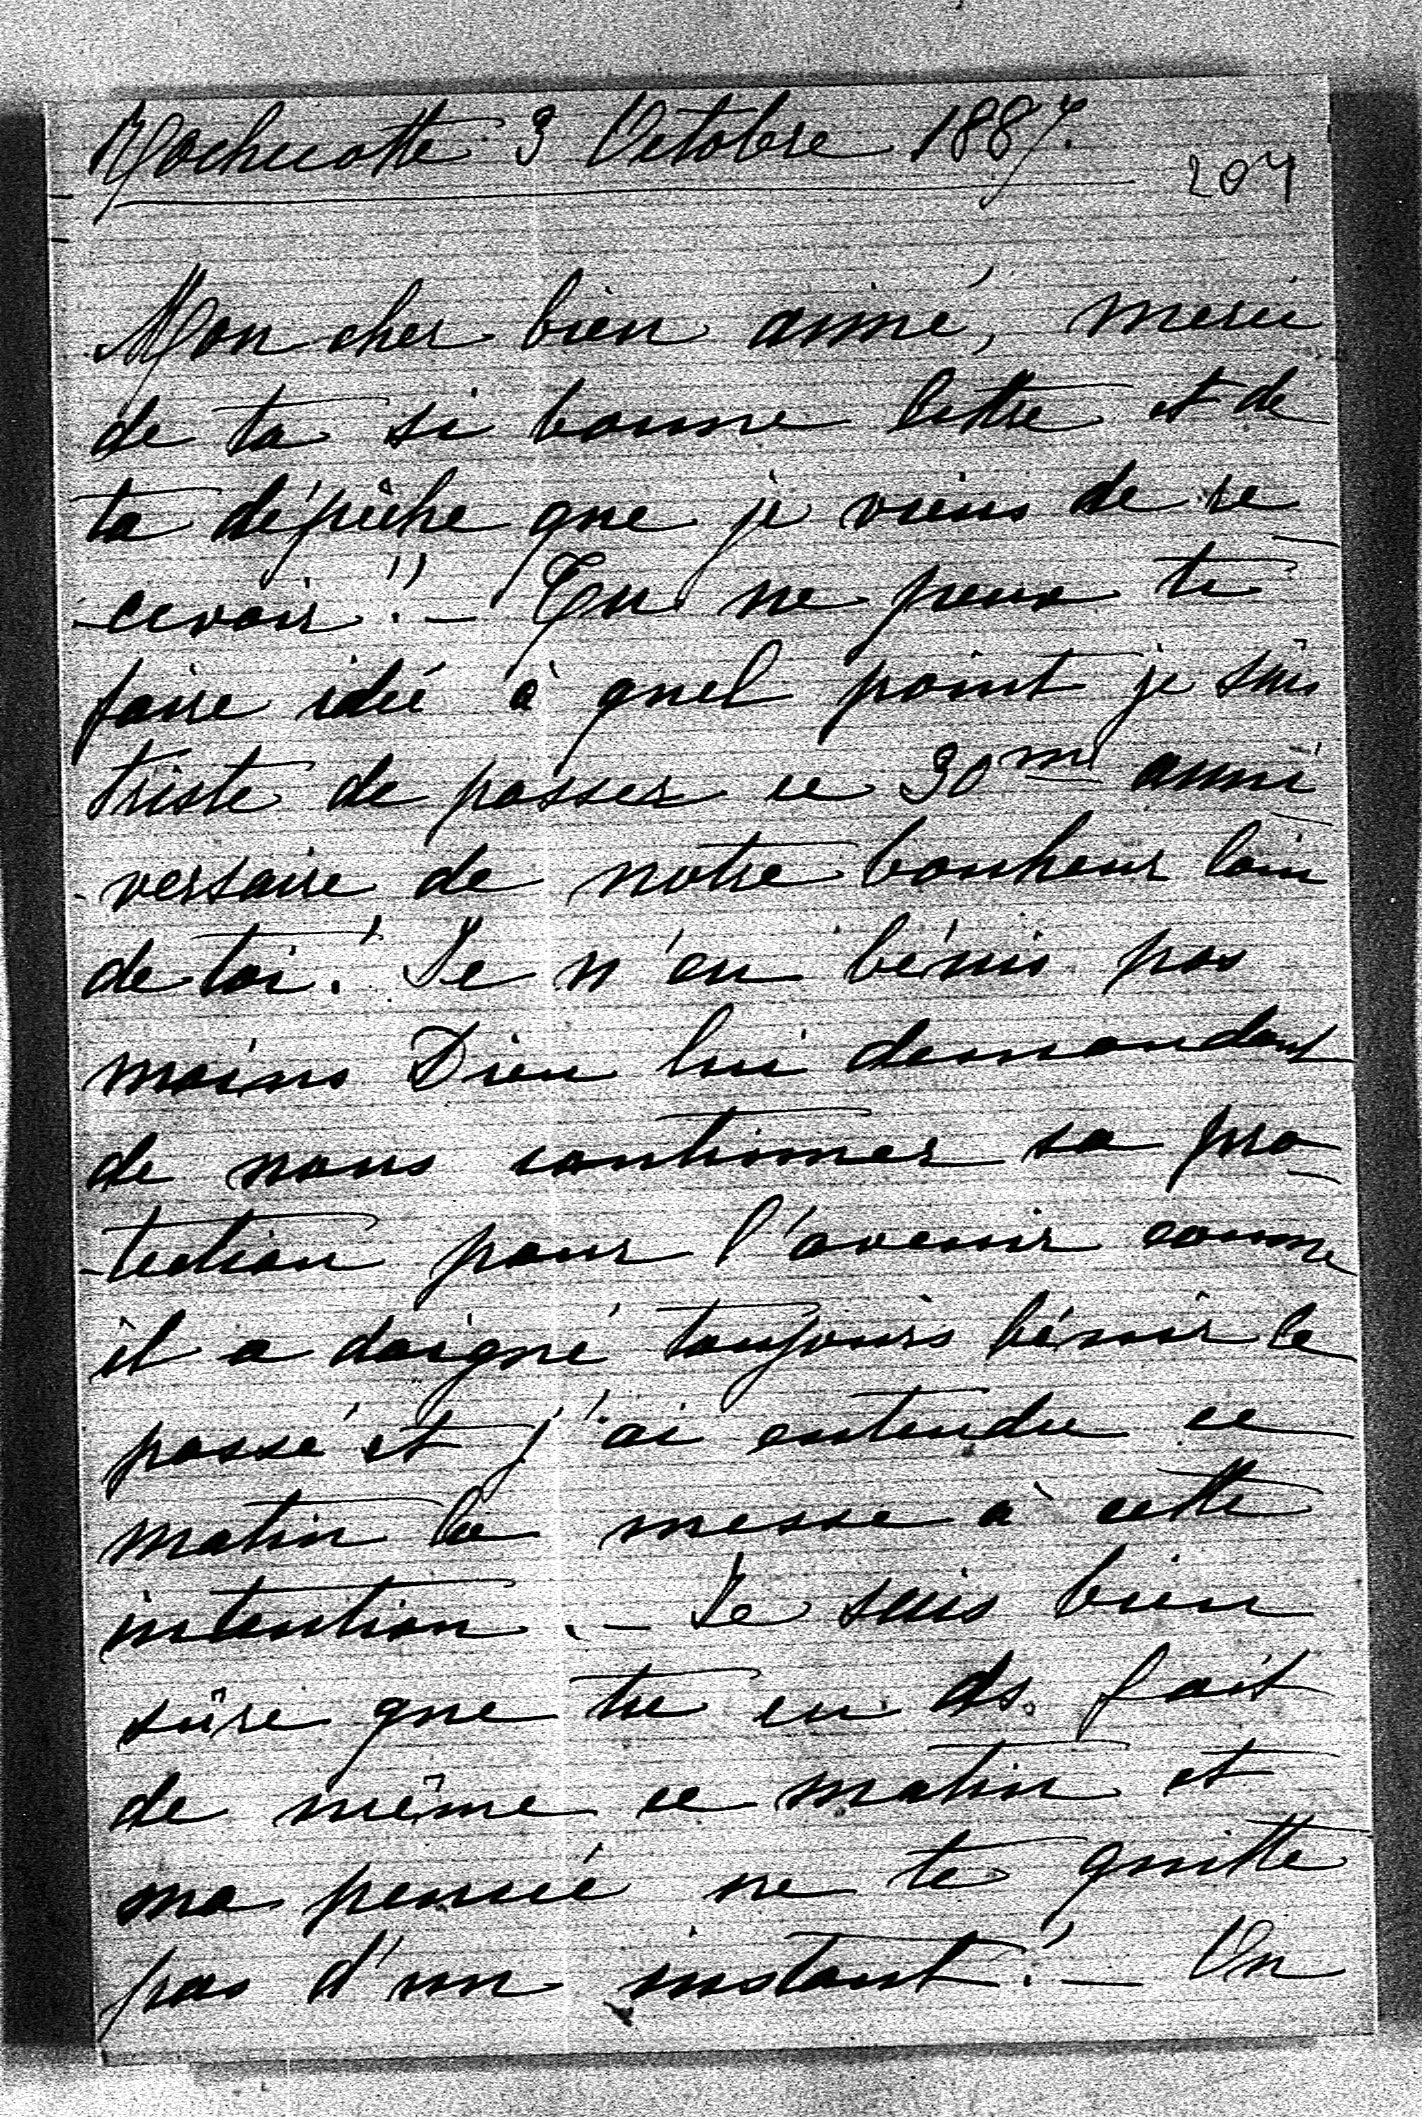 Rochecotte 3 Octobre 1887.
207
Mon cher bien aimé, merci
de ta si bonne lettre et de
ta dépêche que je viens de re
-cevoir!! — Tu ne peux te
faire idée à quel point je suis
triste de passer ce 30me anni
-versaire de notre bonheur loin
de toi! Je n'en bénis pas
moins Dieu lui demandant
de nous continuer sa pro
-tection pour l'avenir comme
il a daigné toujours bénir le
passé et j'ai entendu ce
matin la messe à cette
intention. — Je suis bien
sûre que tu en as fait
de même ce matin et
ma pensée ne te quitte
pas d'un instant! — On